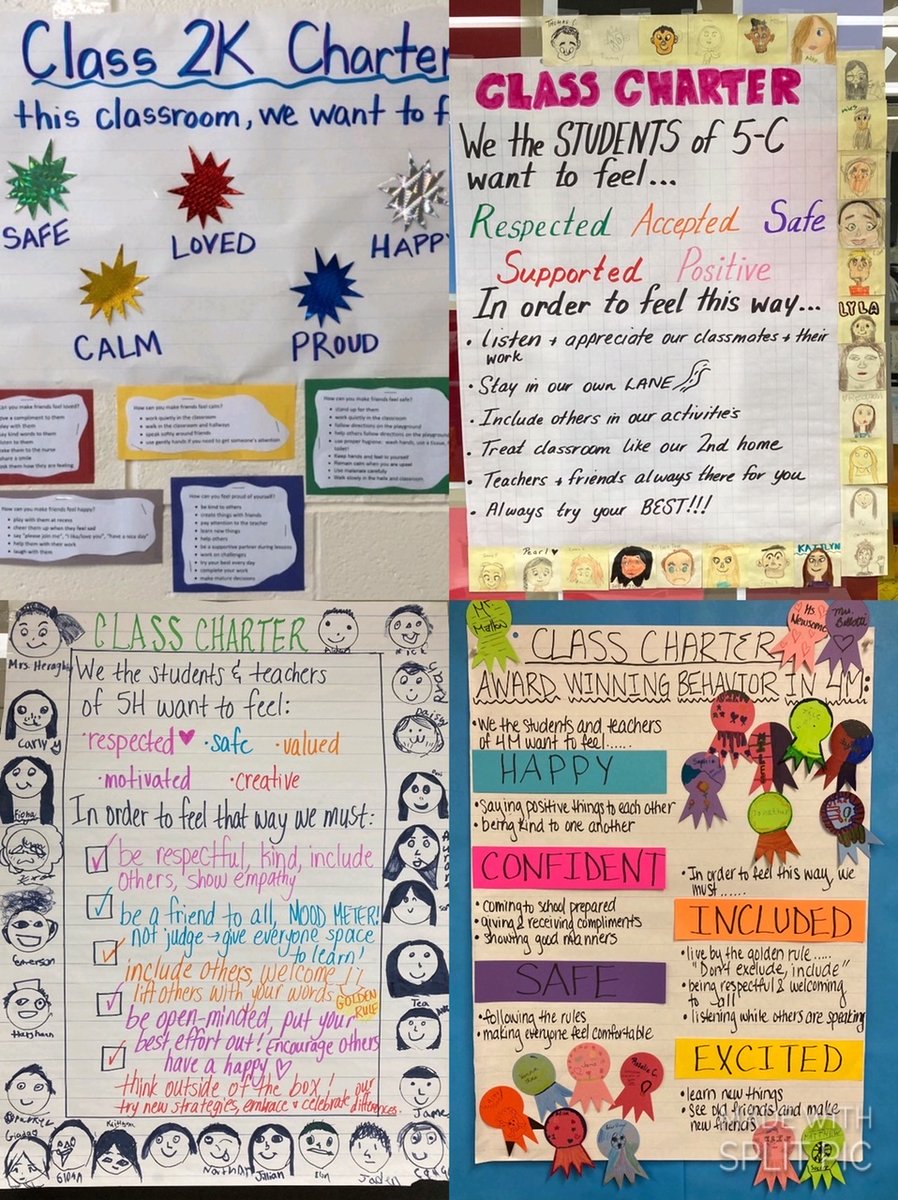 Class 2K Charter
this classroom, we want to f
SAFE
LOVED
HAPPY
CALM
PROUD
can you make friends feel loved?
a compliment to them
play with them
say kind words to them
listen to them
take them to the nurse
share a smile
ask them how they are feeling
How can you make friends feel calm?
work quietly in the classroom
walk in the classroom and hallways
speak softly around friends
use gently hands if you need to get someone's attention
How can you make friends feel safe?
stand up for them
work quietly in the classroom
follow directions on the playground
help others follow directions on the playground
use proper hygiene: wash hands, use a tissue,
toilet!
Keep hands and feet to yourself
Remain calm when you are upset
Use materials carefully
Walk slowly in the halls and classroom
can you make friends feel happy?
play with them at recess
cheer them up when they feel sad
say "please join me", "I like/love you", "have a nice day"
help them with their work
laugh with them
How can you feel proud of yourself?
be kind to others
create things with friends
pay attention to the teacher
learn new things
help others
be a supportive partner during lessons
work on challenges
try your best every day
complete your work
make mature decisions
THOMAS
CLASS CHARTER
We the STUDENTS of 5-C
want to feel...
Respected Accepted Safe
Supported Positive
In order to feel this way...
• Listen + appreciate our classmates + their
work
• Stay in our own LANE
• Include others in our activities
• Treat classroom like our 2nd home
• Teachers + friends always there for you
• Always try your BEST!!!
LYLA
Pearl ♥
KAITLYN
CLASS CHARTER
Mrs. Heraghty
Aidan
Nick
We the students & teachers
of 5H want to feel:
• respected ♥ • safe • valued
• motivated • creative
In order to feel that way we must:
be respectful, kind, include
others, show empathy
be a friend to all, MOOD METER!
not judge → give everyone space
to learn!
include others, welcome
lift others with your words
GOLDEN
RULE
be open-minded, put your
best effort out! Encourage others
have a happy ♡
think outside of the box! our
try new strategies, embrace + celebrate differences.
Carly
Fiona
Emerson
Daisy
Tea
Jame
Giada
Nathan
Jillian
Elin
Jaden
Mr.
Mallon
Ms.
Newsome
Mrs.
Bellotti
CLASS CHARTER
AWARD WINNING BEHAVIOR IN 4M:
• We the students and teachers
of 4M want to feel.....
HAPPY
• Saying positive things to each other
• being kind to one another
CONFIDENT
• coming to school prepared
• giving & receiving compliments
• showing good manners
SAFE
• following the rules
• making everyone feel comfortable
• In order to feel this way, we
must......
INCLUDED
• live by the golden rule.....
"Don't exclude, include"
• being respectful & welcoming
to all
• listening while others are speaking
EXCITED
• learn new things
• see old friends and make
new friends
Sophia
Natalie C.
MATTHEW
MADE WITH
SPLITPIC